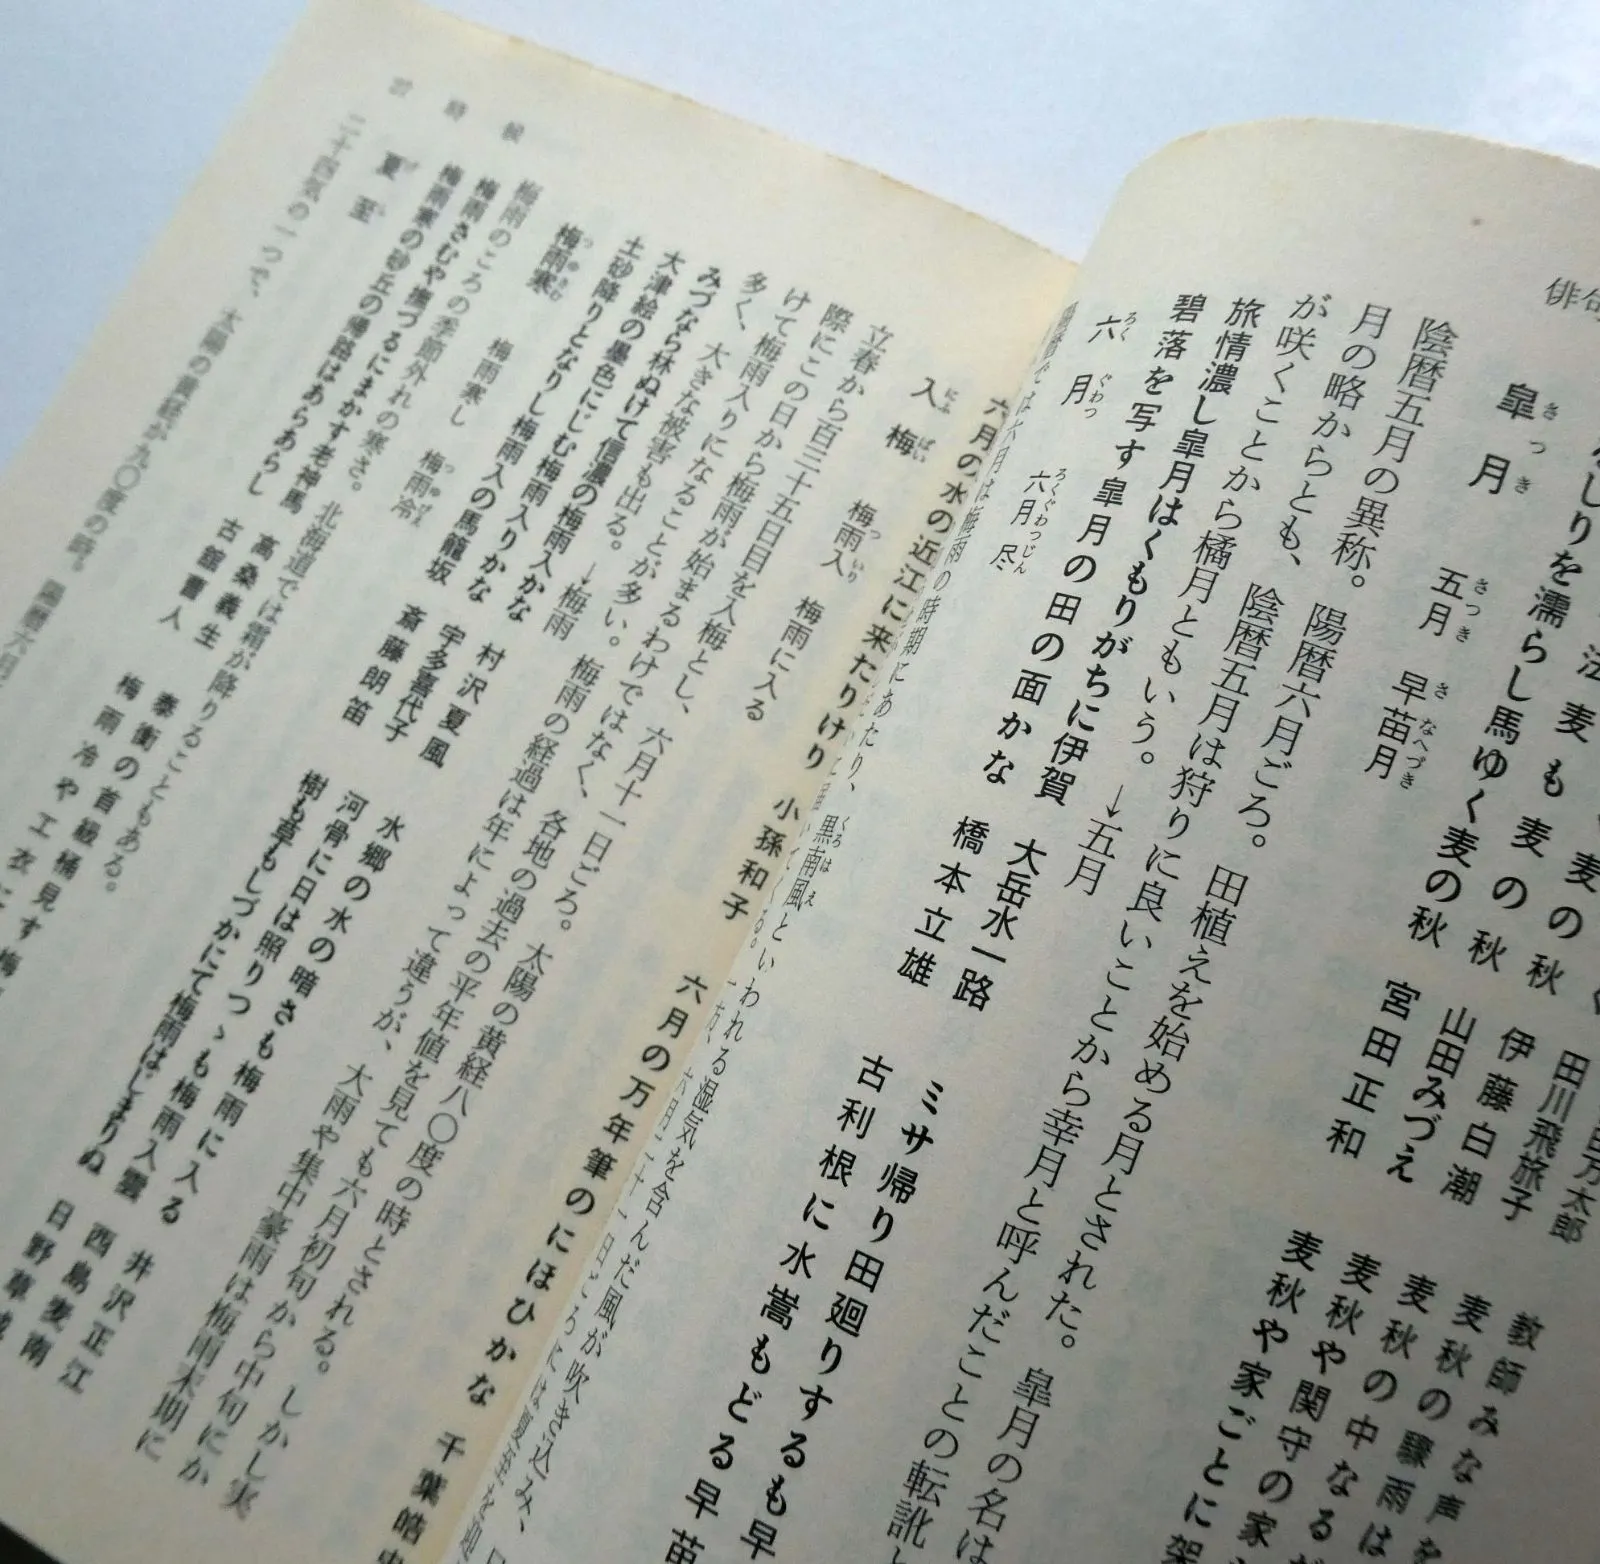 俳句
しりを濡らし馬ゆく麦の秋
宮田正和
麦秋や家ごとに架
麦の秋
山田みづえ
麦秋や関守の家
麦の秋
伊藤白潮
麦秋の中なる
田川飛旅子
麦秋の驟雨は
教師みな声を
皐月 さつき
五月 さつき
早苗月 さなへづき
陰暦五月の異称。陽暦六月ごろ。田植えを始める月とされた。皐月の名は
月の略からとも、陰暦五月は狩りに良いことから幸月と呼んだことの転訛と
が咲くことから橘月ともいう。→五月
旅情濃し皐月はくもりがちに伊賀
大岳水一路
ミサ帰り田廻りするも早
碧落を写す皐月の田の面かな
橋本立雄
古利根に水嵩もどる早苗
六月 ろくぐわつ
六月尽 ろくぐわつじん
は六月は梅雨の時期にあたり、
黒南風といわれる湿気を含んだ風が吹き込み、
六月の水の近江に来たりけり
小孫和子
六月の万年筆のにほひかな
千葉皓史
入梅 にふばい
梅雨入 ついり
梅雨に入る
立春から百三十五日目を入梅とし、六月十一日ごろ。太陽の黄経八〇度の時とされる。しかし実
際にこの日から梅雨が始まるわけではなく、各地の過去の平年値を見ても六月初旬から中旬にか
けて梅雨入りになることが多い。梅雨の経過は年によって違うが、大雨や集中豪雨は梅雨末期に
多く、大きな被害も出る。→梅雨
みづなら林ぬけて信濃の梅雨入かな
村沢夏風
水郷の水の暗さも梅雨に入る
井沢正江
大津絵の墨色にじむ梅雨入りかな
宇多喜代子
河骨に日は照りつゝも梅雨入雲
西島麦南
土砂降りとなりし梅雨入の馬籠坂
斎藤朗笛
樹も草もしづかにて梅雨はじまりぬ
日野草城
梅雨寒 つゆさむ
梅雨寒し
梅雨冷 つゆびえ
梅雨のころの季節外れの寒さ。北海道では霜が降りることもある。
梅雨さむや撫づるにまかす老神馬
高桑義生
泰衡の首級桶見す梅
梅雨寒の砂丘の帰路はあらあらし
古舘曹人
梅雨冷や工衣に
夏至 げし
二十四気の一つで、太陽の黄経が九〇度の時。陽暦六月
時候